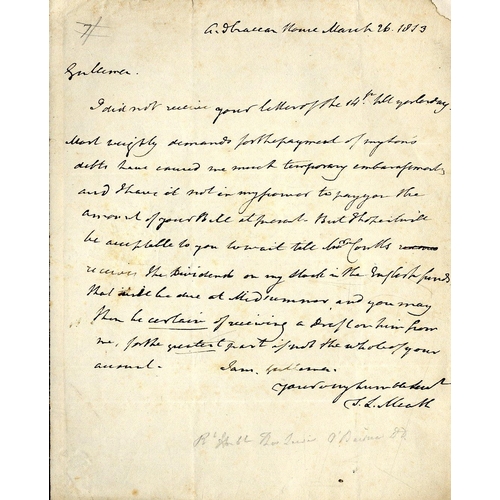 Ardbraccan House March 26. 1813
Gentlemen.
I did not receive your letter of the 14th till yesterday.
Most weighty demands for the payment of my son's
debts have caused me much temporary embarassment,
and I have it not in my power to pay you the
amount of your Bill at present. But I hope it will
be acceptable to you to wait till Coutts
receives the Dividends on my Stock in the English funds
that will be due at Midsummer, and you may
then be certain of receiving a Draft on him from
me, for the greatest part if not the whole of your
account. I am, Gentlemen
your very humble Servt
T. L. Meath
Rt Honble Thos Lewis O'Beirne